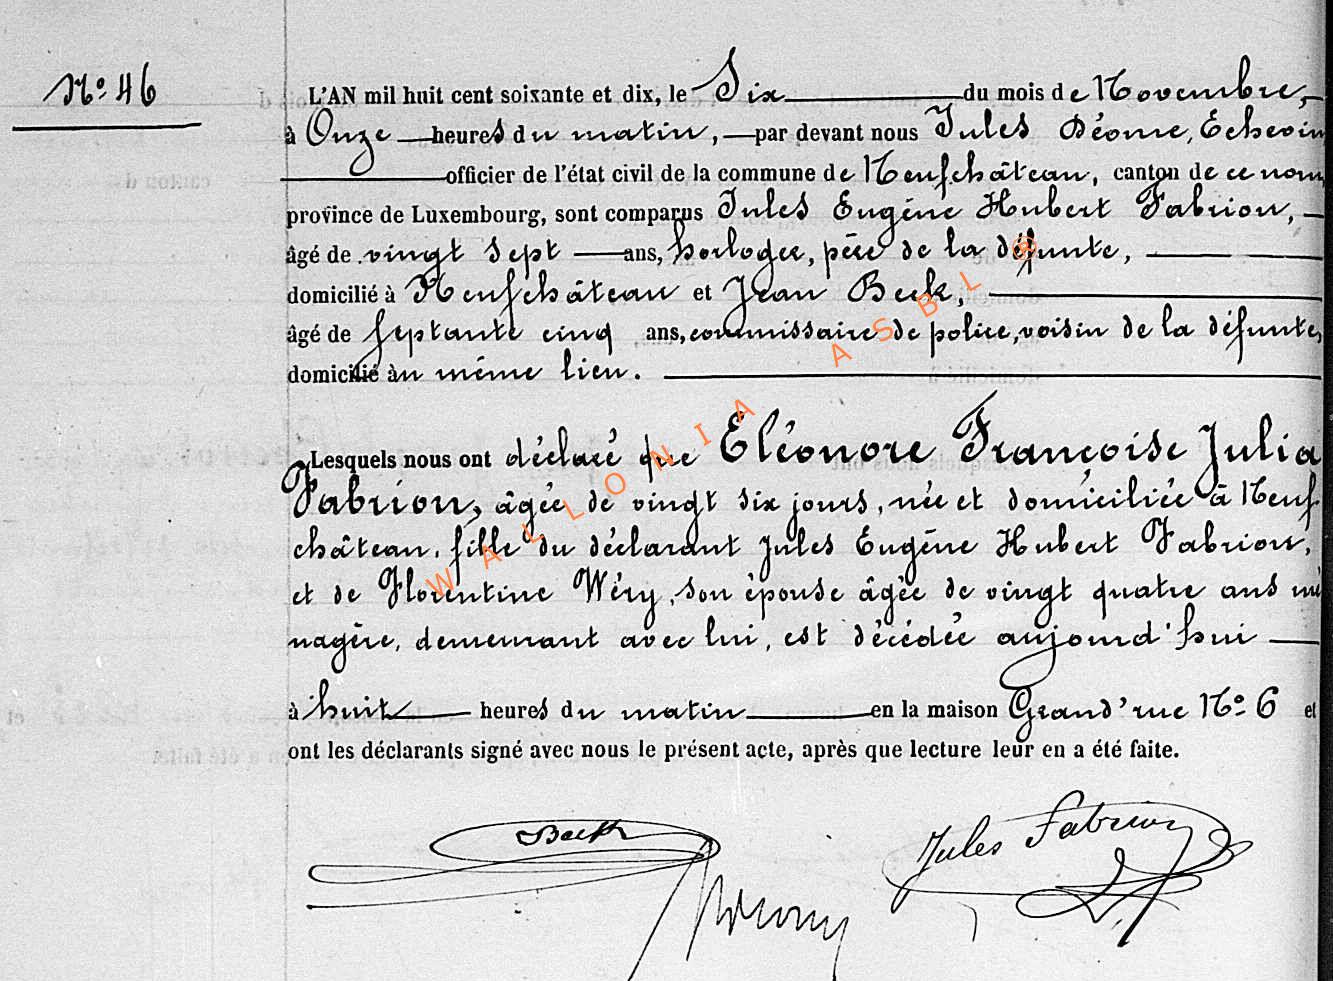 N° 46
L'AN mil huit cent soixante et dix, le Six du mois de Novembre,
à Onze heures du matin, par devant nous Jules Déome, Echevin
officier de l'état civil de la commune de Neufchâteau, canton de ce nom,
province de Luxembourg, sont comparus Jules Eugène Hubert Fabrion,
âgé de vingt sept ans, horloger, père de la défunte,
domicilié à Neufchâteau et Jean Beck,
âgé de septante cinq ans, commissaire de police, voisin de la défunte,
domicilié àu même lieu.
Lesquels nous ont déclaré que Eléonore Françoise Julia
Fabrion, âgée de vingt six jours, née et domiciliée à Neuf
château, fille du déclarant Jules Eugène Hubert Fabrion,
et de Florentine Wéry, son épouse âgée de vingt quatre ans mé
nagère, demeurant avec lui, est décédée aujourd'hui
à huit heures du matin en la maison Grand'rue N° 6 et
ont les déclarants signé avec nous le présent acte, après que lecture leur en a été faite.
Beck
Jules Fabrion
WALLONIA ASBL ®